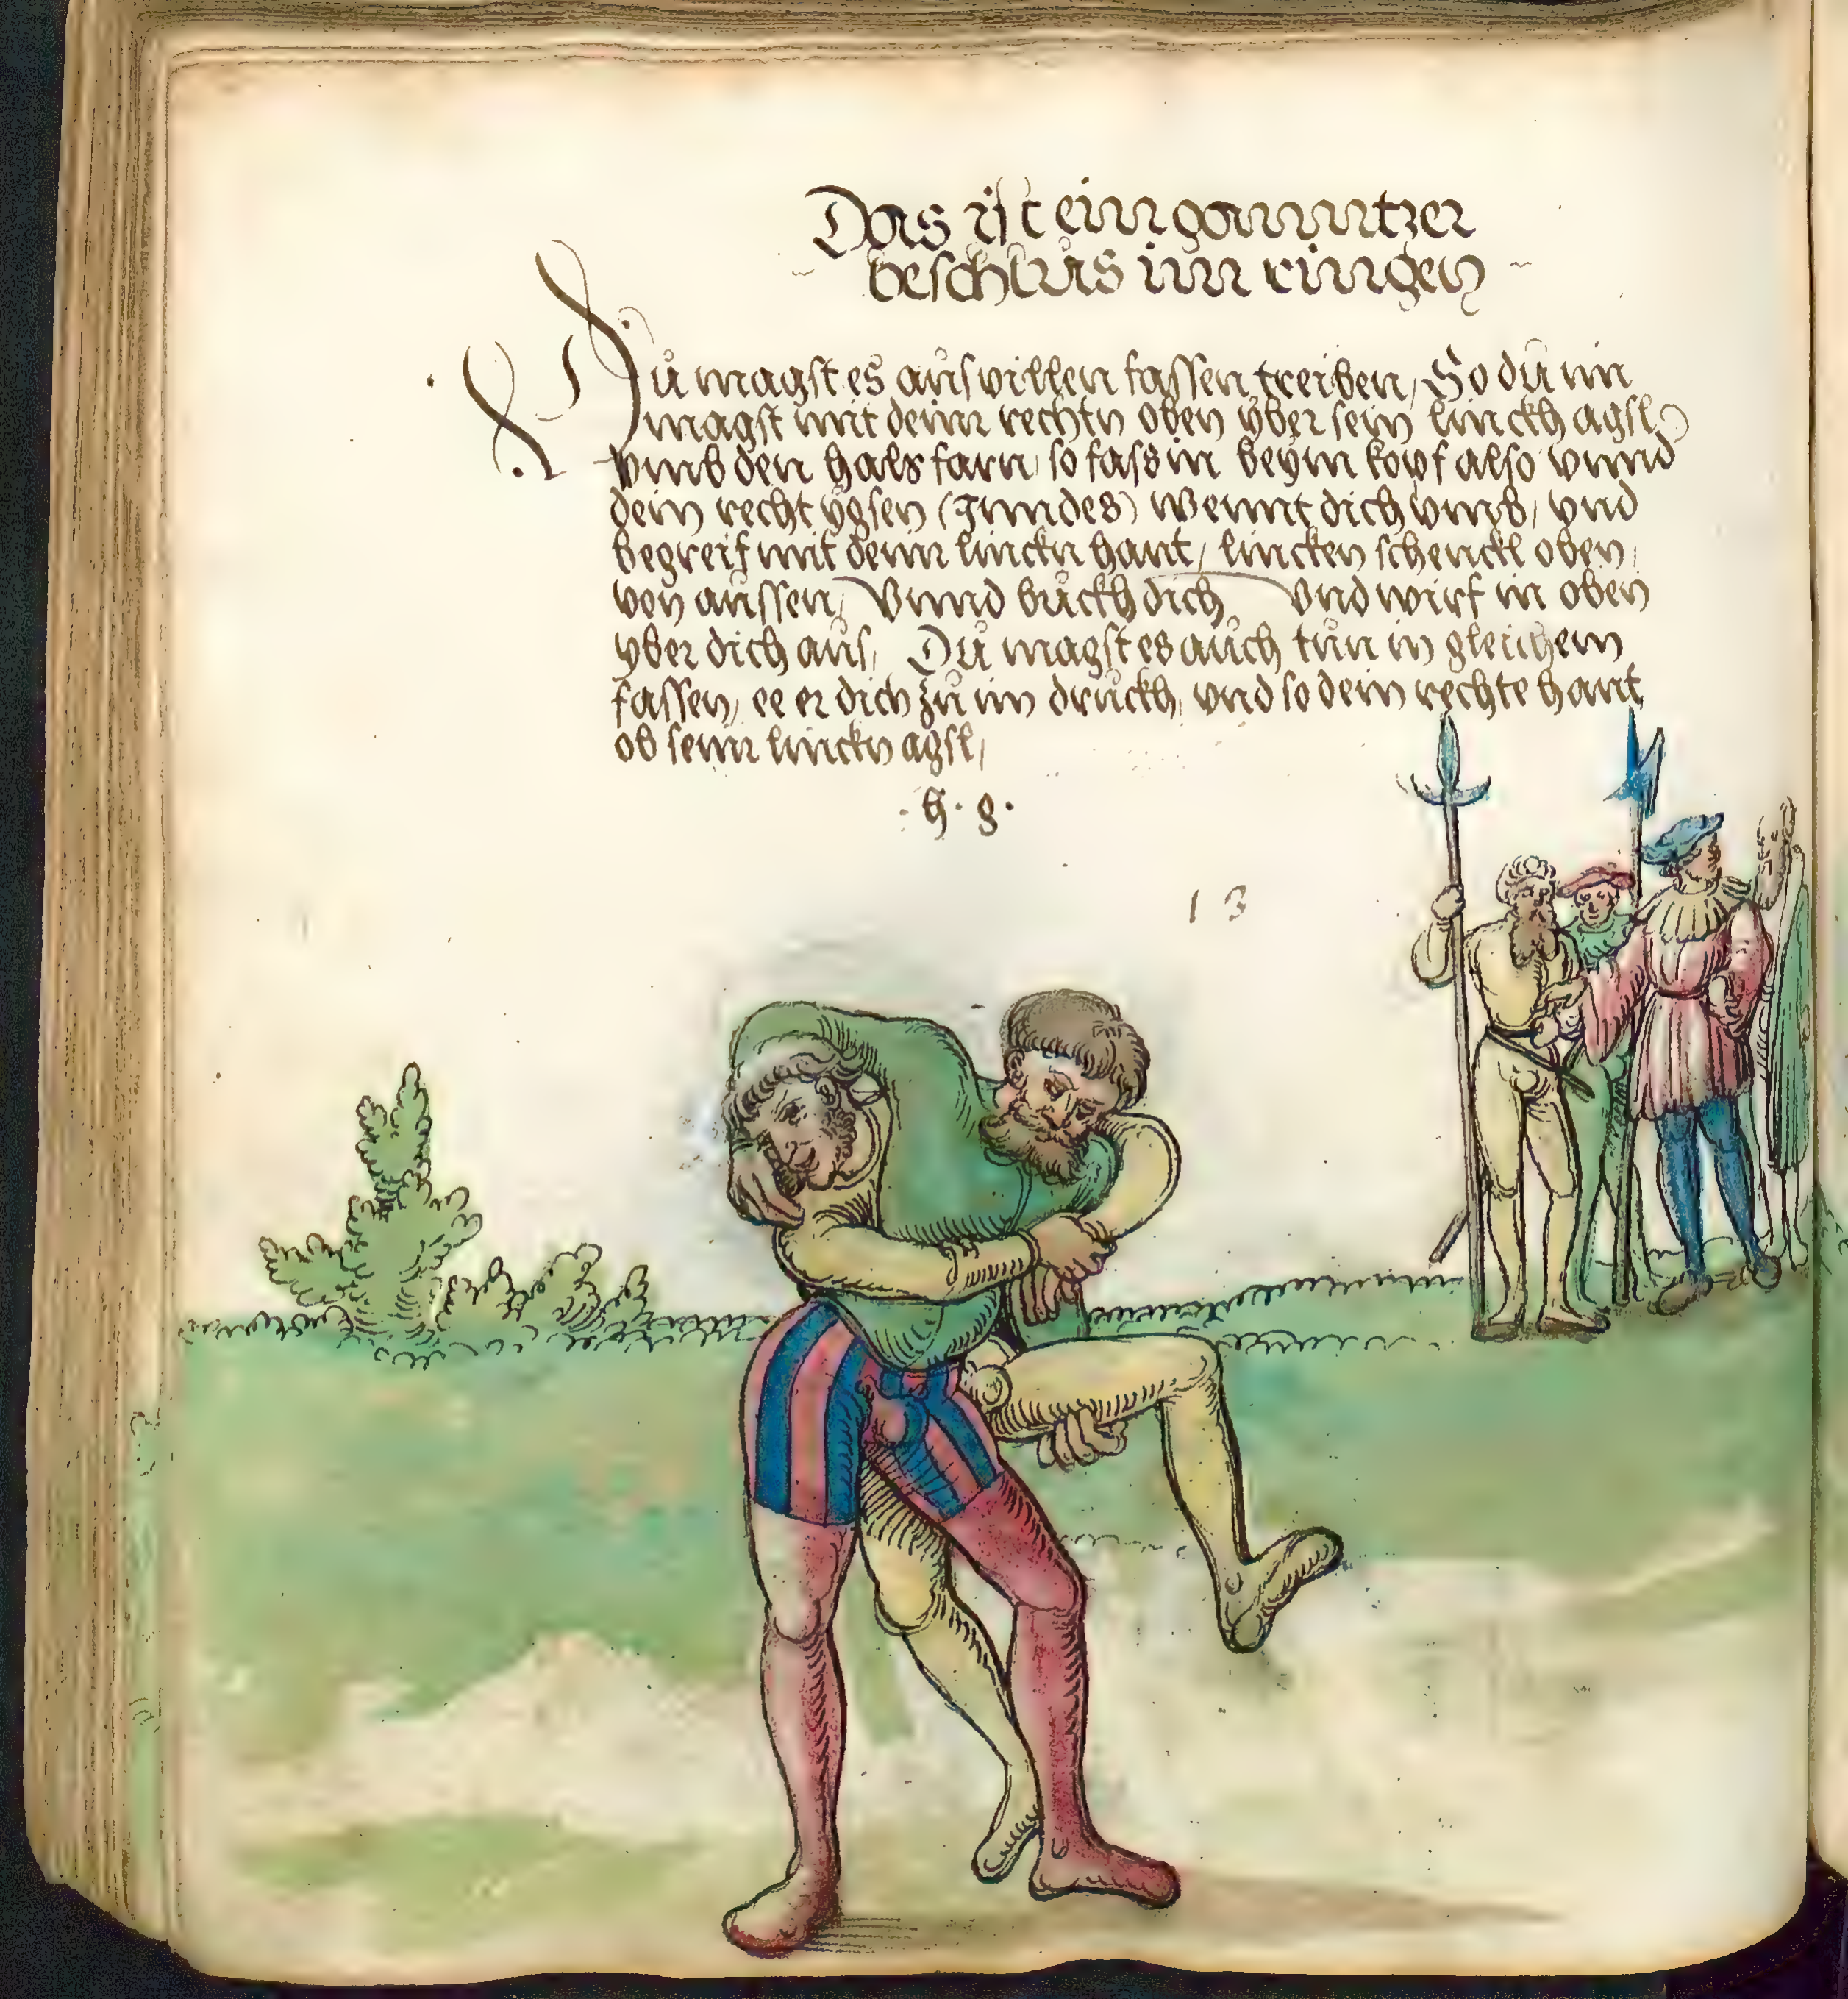 Das ist ein ganntzer
beschlus im ringen
Dů magst es aůs villen fassen treiben, So dů im
magst mit deinr rechtn oben yber sein linckh agsl
vmb den hals farn, so fass in beym kopf also vnnd
dein recht ygsen (Inndes) wennt dich vmb, vnd
begreif mit deinr linckn hant, lincken schenckl oben,
von aůssen, Vnnd bůckh dich vnd wirf in oben
yber dich aůs, Dů magst es aůch tůn in gleichem
fassen, ee er dich zů im drůckh, vnd so dein rechte hant
ob seinr linckn agsl,
· h · g ·
13